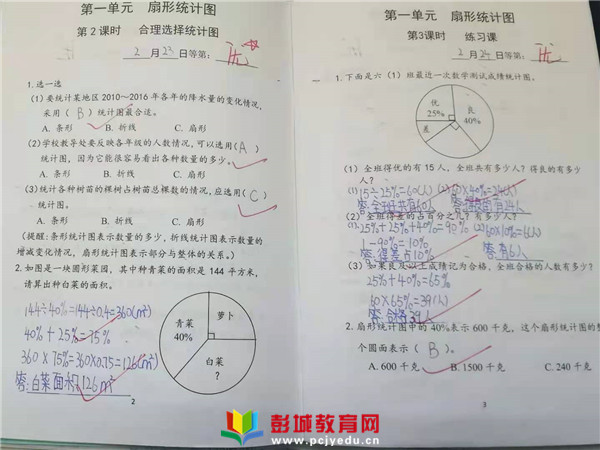 第一单元 扇形统计图
第2课时 合理选择统计图
2月23日等第: 优
1.选一选
(1)要统计某地区2010~2016年各年的降水量的变化情况,
采用( B )统计图最合适。
A. 条形 B. 折线 C. 扇形
(2)学校教导处要反映各年级的人数情况,可以选用( A )
统计图,因为它能很容易看出各种数量的多少。
A. 条形 B. 折线 C. 扇形
(3)统计各种树苗的棵树占树苗总棵数的情况,应选用( C )
统计图。
A. 条形 B. 折线 C. 扇形
(提醒:条形统计图表示数量的多少,折线统计图表示数量的
增减变化情况,扇形统计图表示部分与整体的关系。)
2.如图是一块圆形菜园,其中种青菜的面积是144平方米,
请算出种白菜的面积。
144÷40%=144÷0.4=360(m²)
40%+25%=75%
360×75%=360×0.75=126(m²)
答:白菜面积126m²
青菜
40%
萝卜
白菜
?
2
第一单元 扇形统计图
第3课时 练习课
2月24日等第: 优
1.下面是六(1)班最近一次数学测试成绩统计图。
优
25%
良
40%
差
(1)全班得优的有15人,全班共有多少人?得良的有多少
人?
(1)15÷25%=60(人) (2)60×40%=24(人)
答:全班共有60人 答:得良的有24人
(2)全班得差的占百分之几?有多少人?
(1)25%+25%+40%=90% (2)60×10%=6(人)
1-90%=10% 答:有6人
答:得差占10%
(3)如果良及以上成绩记为合格,全班合格的人数有多少?
25%+40%=65%
60×65%=39(人)
答:合格39人
2.扇形统计图中的40%表示600千克,这个扇形统计图的整
个圆面表示( B )。
A. 600千克 B. 1500千克 C. 240千克
3
彭城教育网
www.pcjyedu.cn